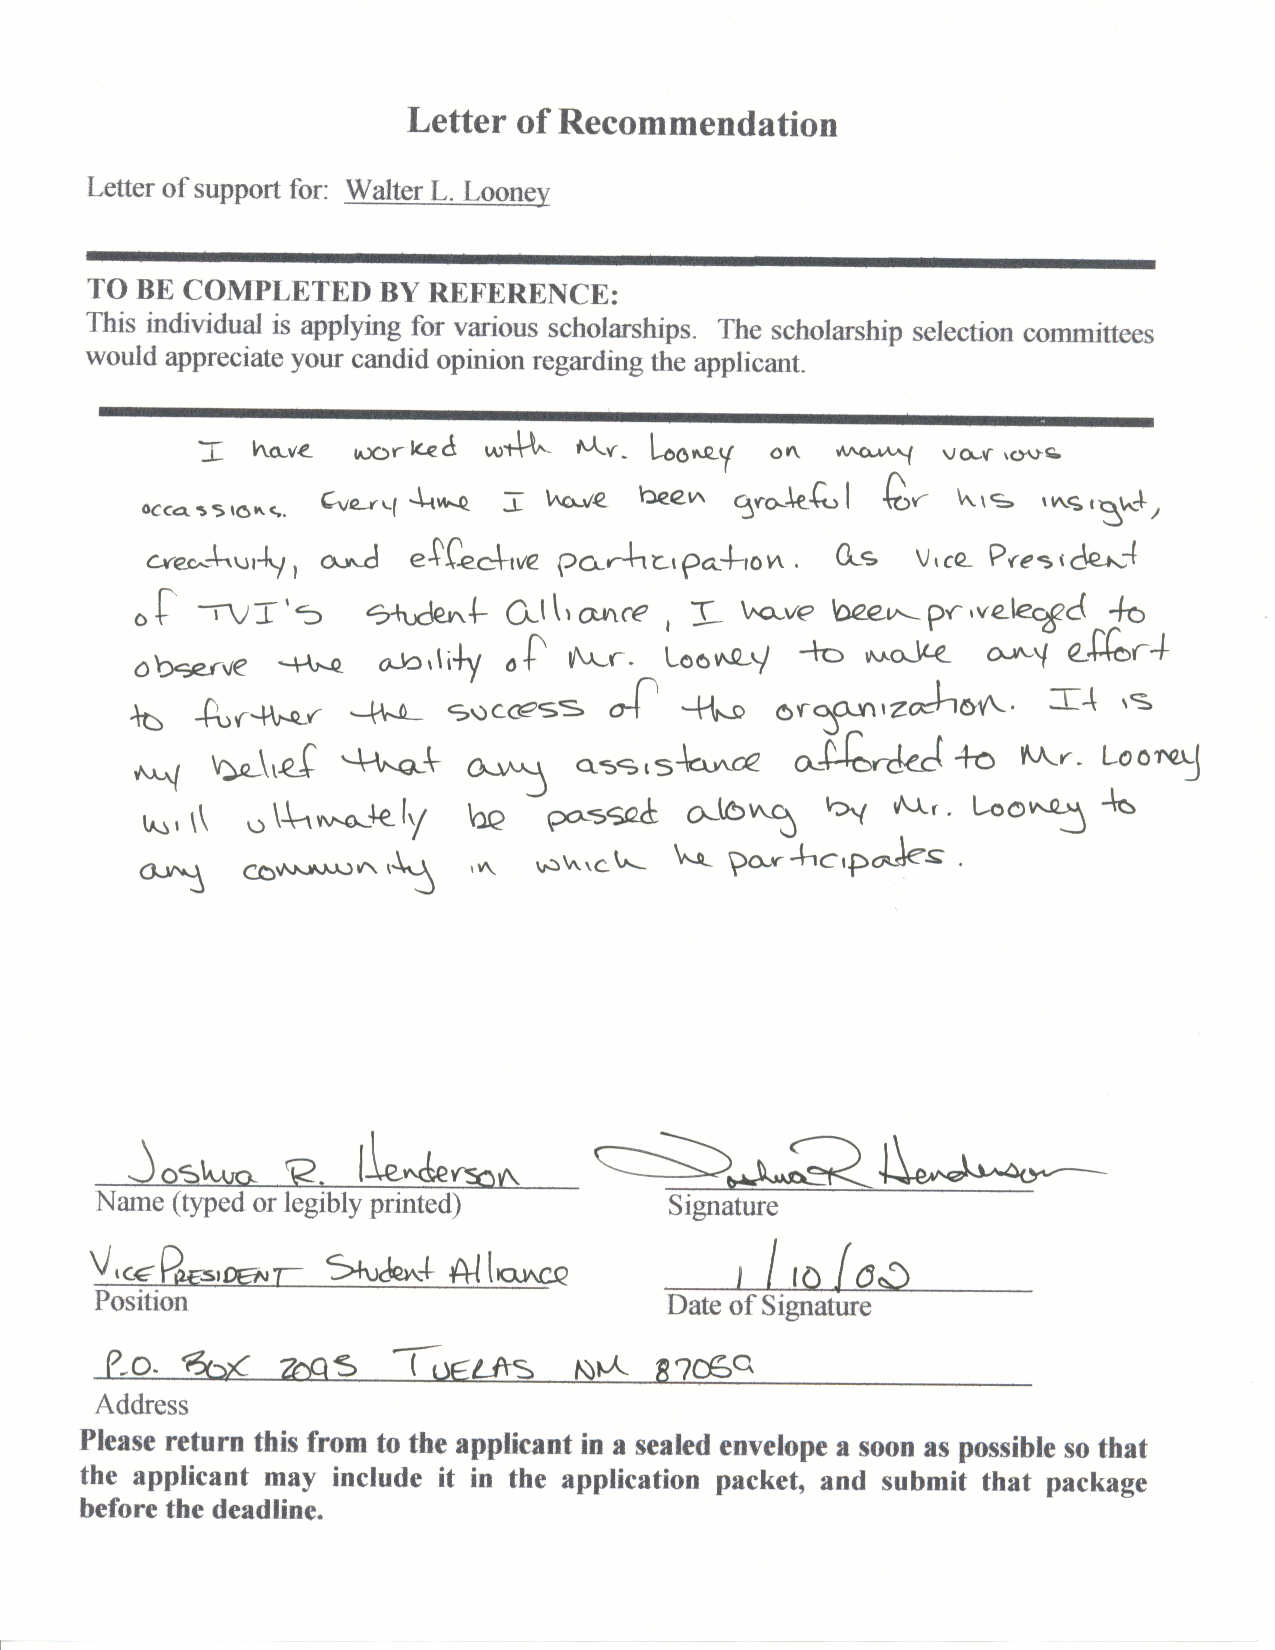 Letter of Recommendation
Letter of support for: Walter L. Looney
TO BE COMPLETED BY REFERENCE:
This individual is applying for various scholarships. The scholarship selection committees
would appreciate your candid opinion regarding the applicant.
I have worked with Mr. Looney on many various
occassions. Every time I have been grateful for his insight,
creativity, and effective participation. As Vice President
of TVI's Student Alliance, I have been priveleged to
observe the ability of Mr. Looney to make any effort
to further the success of the organization. It is
my belief that any assistance afforded to Mr. Looney
will ultimately be passed along by Mr. Looney to
any community in which he participates.
Joshua R. Henderson Joshua R Henderson
Name (typed or legibly printed) Signature
Vice President Student Alliance 1/10/02
Position Date of Signature
P.O. Box 2095 NM 87059
Address
Please return this from to the applicant in a sealed envelope a soon as possible so that
the applicant may include it in the application packet, and submit that package
before the deadline.